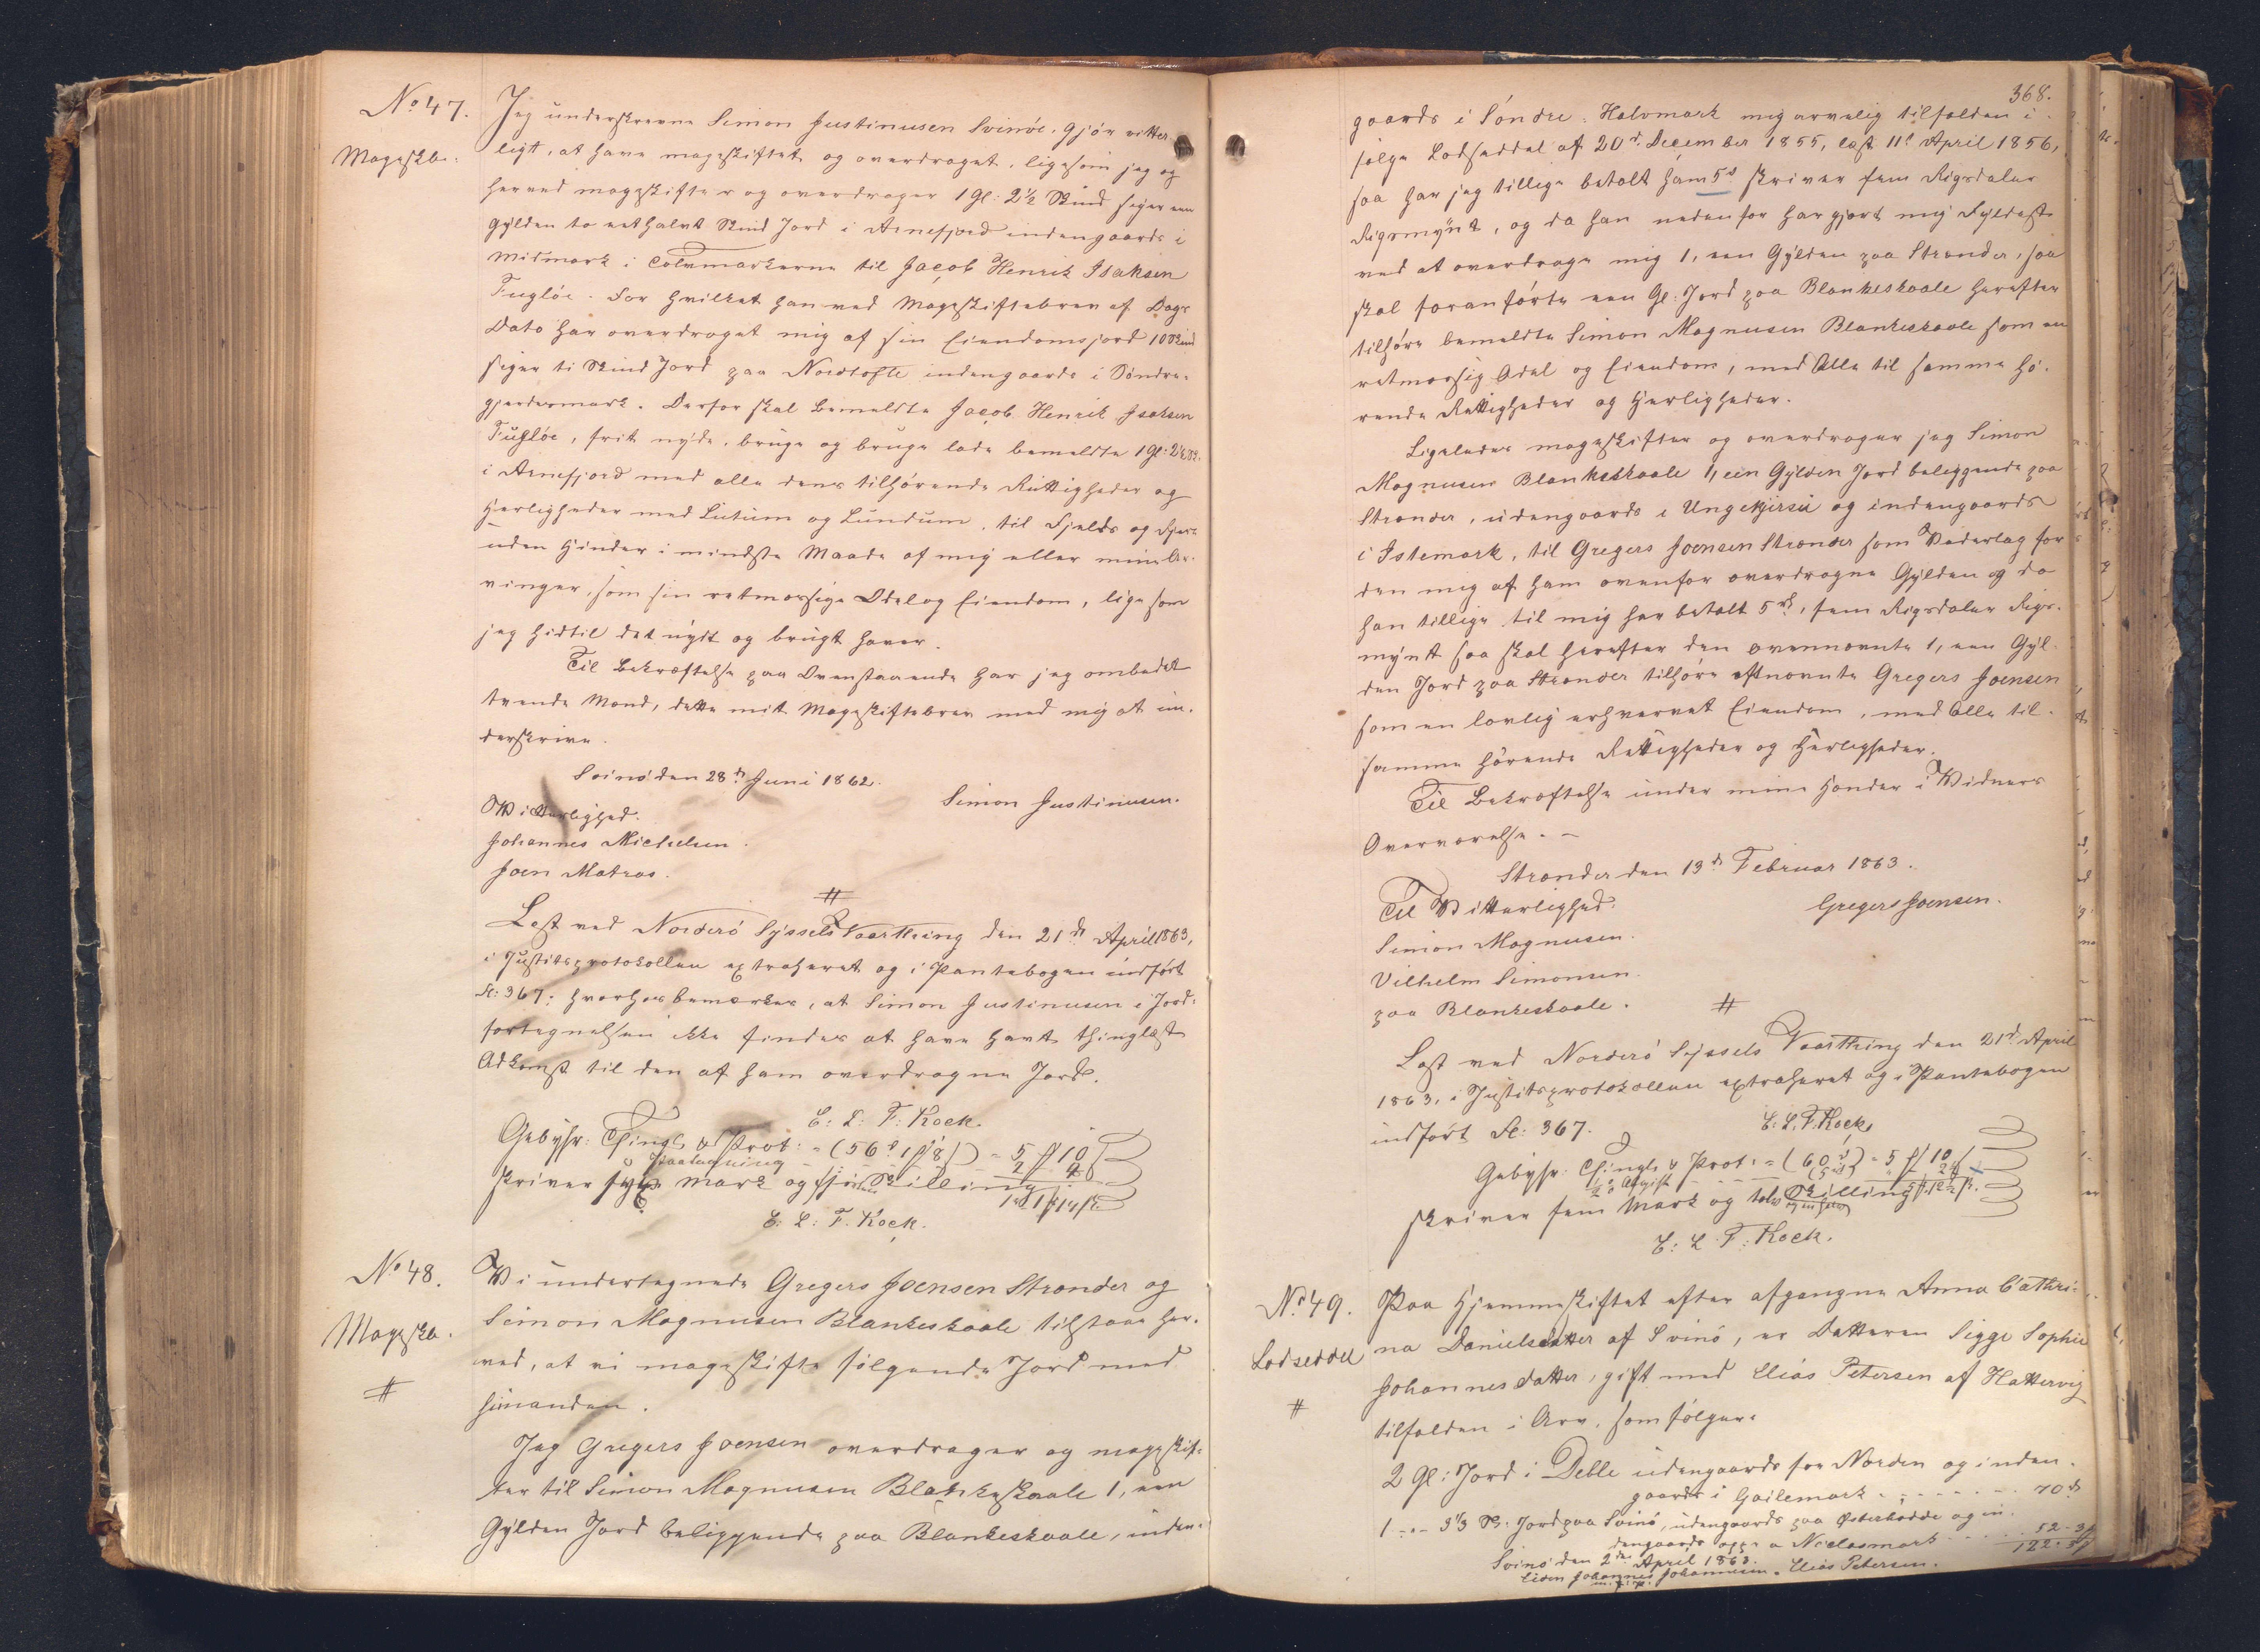 No 47.
Mageskb.
Jeg underskrevne Simon Justinusen Svinöe, gjör vitter-
ligtt, at have mageskiftet og overdraget, ligesom jeg og
herved mageskifter og overdrager 1 Gl: 2½ Skind siger een
Gylden to eethalvt Skind Jord i Arnefjord indengaards i
Midmark i Tolvmarkerne til Jacob Henrik Isaksen
Fuglöe. For hvilket han ved Mageskiftebrev af Dags
Dato har overdraget mig af sin Eiendomsjord 10 Skind
siger ti Skind Jord paa Nordtofte indengaards i Söndre-
gjerdermark. Derfor skal bemeldte Jacob Henrik Isaksen
Fuglöe, frit nyde, bruge og bruge lade bemeldte 1 Gl: 2½ Sk.
i Arnefjord med alle dens tilhörende Rettigheder og
Herligheder med Lutum og Lundum, til Fjelds og Fjære
uden Hinder i mindste Maade af mig eller mine Ar-
vinger, som sin retmæssige Odel og Eiendom, lige som
jeg hidtil det nydt og brugt haver.
Til Bekræftelse paa Ovenstaaende har jeg ombedet
tvende Mænd, dette mit Mageskiftebrev med mig at un-
derskrive.
Svinö den 28d Juni 1862.
Simon Justinusen.
Witterlighed.
Johannes Michelsen.
Joen Matras.
#
Læst ved Norderö Syssels Vaarthing den 21d April 1863,
i Justitsprotokollen extraheret og i Pantebogen indfört
Fl: 367; hvorhos bemærkes, at Simon Justinusen i Jord-
fortegnelsen ikke findes at have havt thinglæst
Adkomst til den af ham overdragne Jord.
E: L: F: Kock.
Gebyhr: Thingl. & Prot: = (56d 1 # 8 /) = 5 # 10
Paategning 2 4
skriver syv Mark og fjorten Skilling
1 rd 1 # 14 s.
E: L: F. Kock.
No 48.
Mageskb.
#
Wi undertegnede Gregers Joensen Strander og
Simon Magnusen Blankeskaale tilstaae her-
ved, at vi mageskifte fölgende Jord med
hinanden.
Jeg Gregers Joensen overdrager og mageskif-
ter til Simon Magnusen Blankeskaale 1, een
Gylden Jord beliggende paa Blankeskaale, inden-
368.
gaards i Söndre-Halvmark mig arvelig tilfalden i
fölge Lodseddel af 20d December 1855, læst 11d April 1856,
saa har jeg tillige betalt ham 5d skriver fem Rigsdaler
Rigsmynt, og da han nedenfor har gjort mig Fyldest
ved at overdrage mig 1, een Gylden paa Strander, saa
skal foranförte een Gl: Jord paa Blankeskaale herefter
tilhöre bemeldte Simon Magnusen Blankeskaale som en
retmæssig Odel og Eiendom, med Alle til samme hö-
rende Rettigheder og Herligheder.
Ligeledes mageskifter og overdrager jeg Simon
Magnusen Blankeskaale 1, een Gylden Jord beliggende paa
Strander, udengaards i Ungekjirsu og indengaards
i Istemark, til Gregers Joensen Strander som Vederlag for
den mig af ham ovenfor overdragne Gylden og da
han tillige til mig har betalt 5 rd, fem Rigsdaler Rigs-
myntt saa skal herefter den ovennævnte 1, een Gyl-
den Jord paa Strander tilhöre oftnævnte Gregers Joensen
som en lovlig erhvervet Eiendom, med Alle til
samme hörende Rettigheder og Herligheder.
Til Bekræftelse under mine Hænder i Widners
Overværelse. -
Strander den 13d Februar 1863.
Gregers Joensen.
Til Witterlighed:
Simon Magnusen.
Vilhelm Simonsen.
paa Blankeskaale.
#
Læst ved Norderö Syssels Vaarthing den 21d April
1863, i Justitsprotokollen extraheret og i Pantebogen
indfört Fl: 367.
E. L. F. Kock
Gebyhr: Thingl. & Prot: = (60d) = 5 # 10
½ % Afgift (5 rd) 2½
skriver fem Mark og tolv en halv Skilling 5 #. 12½ s.
E: L. F: Kock.
No 49.
Lodseddel
#
Paa Hjemmeskiftet efter afgangne Anna Cathri-
na Danielsdatter af Svinö, er Datteren Sigge Sophie
Johannesdatter, gift med Elias Petersen af Hattervig
tilfalden i Arv, som fölger:
2 Gl: Jord i Deble udengaards fra Norden og inden-
gaards i Gailemark 70d
1 -"- 3⅓ Sk. Jord paa Svinö, udengaards paa Österhodde og in-
dengaards Niclasmark 52-3#
122-3#
Svinö den 2den April 1863.
Johannes Johannesen. Elias Petersen.
m. f. P.